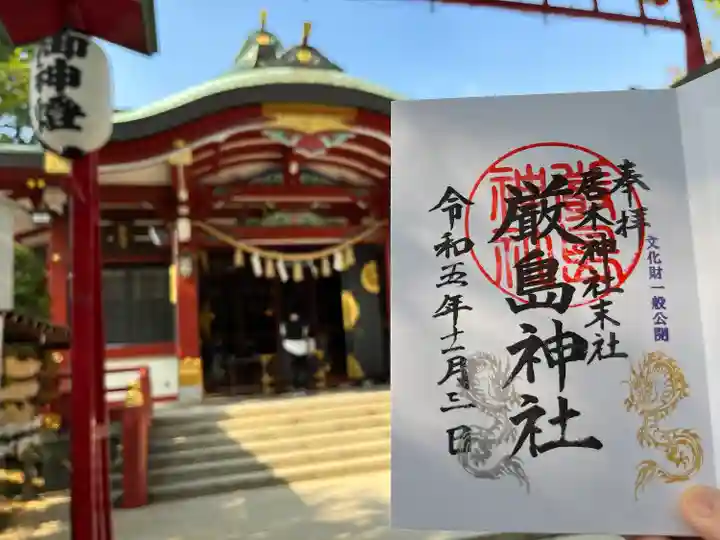 御神燈
奉拝
居木神社末社
厳島神社
令和五年十一月三日
文化財一般公開